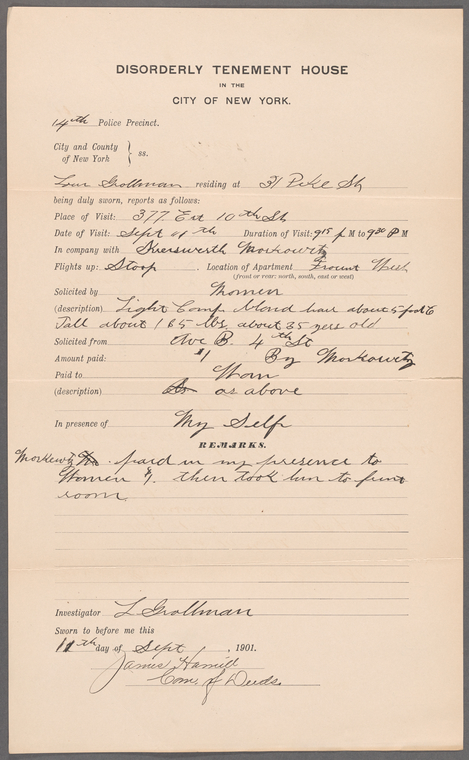 DISORDERLY TENEMENT HOUSE
IN THE
CITY OF NEW YORK.
14th Police Precinct.
City and County
of New York } ss.
Grollman residing at 31 Pike St
being duly sworn, reports as follows:
Place of Visit: 377 Est 10th St
Date of Visit: Sept th Duration of Visit: 9 15 P M to 9 30 P M
In company with Moskowitz
Flights up: Stoop Location of Apartment Frount West
(front or rear: north, south, east or west)
Solicited by Women
(description) Light Comp blond hair about 5 foot 6
Tall about 165 lbs. about 35 yers old
Solicited from Ave B. 4th St
Amount paid: $1 By Moskowitz
Paid to Wom
(description) as above
In presence of My Self
REMARKS.
paid in my presence to
Women $1. then took him to
room
Investigator L Grollman
Sworn to before me this
11th day of Sept , 1901.
James Hamill
Com. of Deeds.